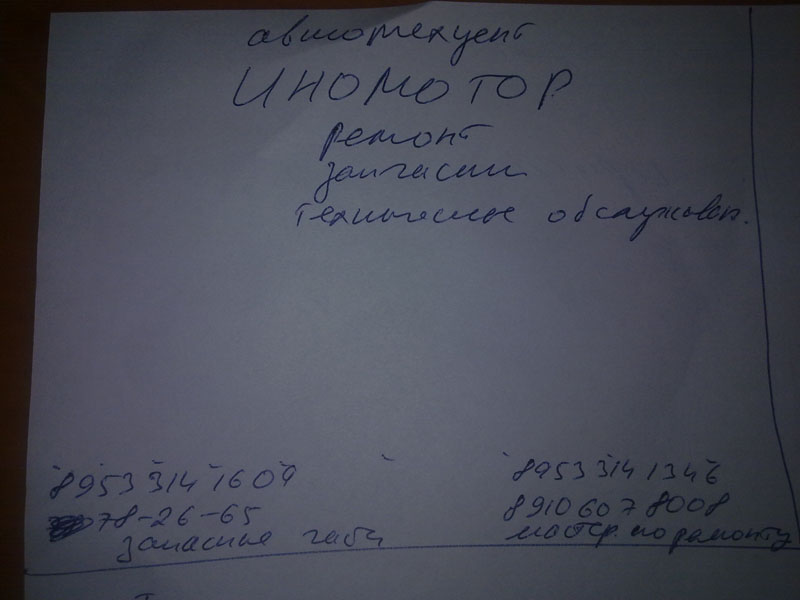 автотехцент
ИНОМОТОР
ремонт
запчасти
техническое обслужован.
8953 314 1609
78-26-65
запасные части
8953 314 1346
8910 607 8008
мастер по ремонту